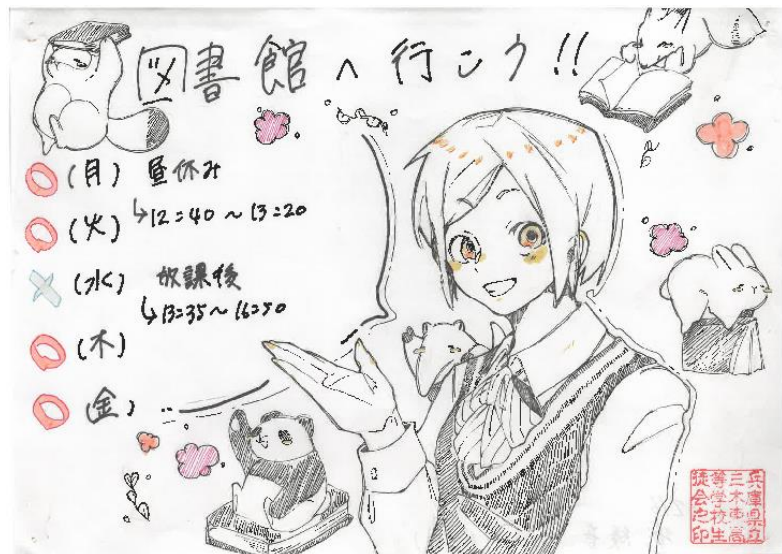 図書館へ行こう!!
○(月) 昼休み
○(火) ↳12:40～13:20
×(水) 放課後
↳13:35～16:50
○(木)
○(金)
兵庫県立
三木東高
等学校生
徒会之印